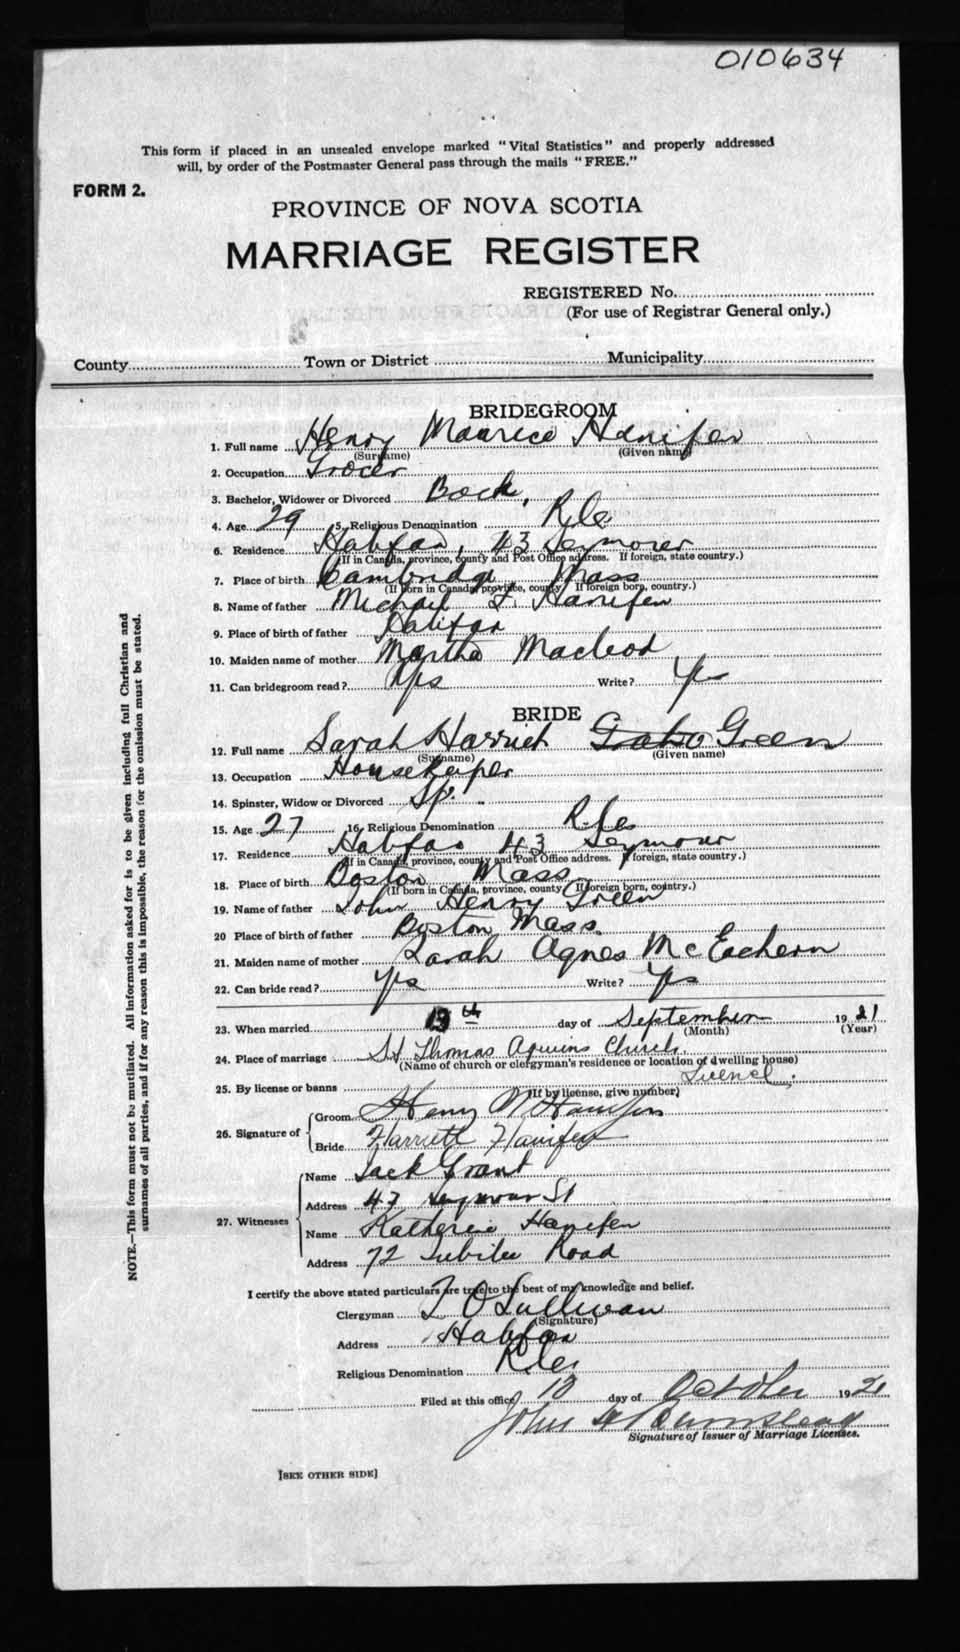 010634
This form if placed in an unsealed envelope marked "Vital Statistics" and properly addressed
will, by order of the Postmaster General pass through the mails "FREE."
FORM 2.
PROVINCE OF NOVA SCOTIA
MARRIAGE REGISTER
REGISTERED No.
(For use of Registrar General only.)
County Town or District Municipality
BRIDEGROOM
1. Full name Henry Maurice Hanifen
(Surname) (Given name)
2. Occupation Grocer
3. Bachelor, Widower or Divorced Bach.
4. Age 29 5. Religious Denomination R.C.
6. Residence Halifax, 43 Seymour
(If in Canada, province, county and Post Office address. If foreign, state country.)
7. Place of birth Cambridge, Mass
(If born in Canada, province, county If foreign born, country.)
8. Name of father Michael F. Hanifen
9. Place of birth of father Halifax
10. Maiden name of mother Martha Macleod
11. Can bridegroom read? Yes Write? Yes
BRIDE
12. Full name Sarah Harriet Green
(Surname) (Given name)
13. Occupation Housekeeper
14. Spinster, Widow or Divorced Sp.
15. Age 27 16. Religious Denomination R.C.
17. Residence Halifax 43 Seymour
(If in Canada, province, county and Post Office address. If foreign, state country.)
18. Place of birth Boston Mass
(If born in Canada, province, county If foreign born, country.)
19. Name of father John Henry Green
20 Place of birth of father Boston Mass.
21. Maiden name of mother Sarah Agnes McEachern
22. Can bride read? Yes Write? Yes
23. When married 13th day of September 1921
(Month) (Year)
24. Place of marriage St Thomas Aquins Church
(Name of church or clergyman's residence or location of dwelling house)
25. By license or banns License.
(If by license, give number)
26. Signature of Groom Henry M Hanifen
Bride Harriett Hanifen
27. Witnesses Name Jack Grant
Address 43 Seymour St
Name Katherine Hanifen
Address 72 Jubilee Road
I certify the above stated particulars are true to the best of my knowledge and belief.
Clergyman T O'Sullivan
(Signature)
Address Halifax
Religious Denomination R.C.
Filed at this office 13 day of October 1921
John
Signature of Issuer of Marriage Licenses.
[SEE OTHER SIDE]
NOTE.—This form must not be mutilated. All information asked for is to be given including full Christian and
surnames of all parties, and if for any reason this is impossible, the reason for the omission must be stated.